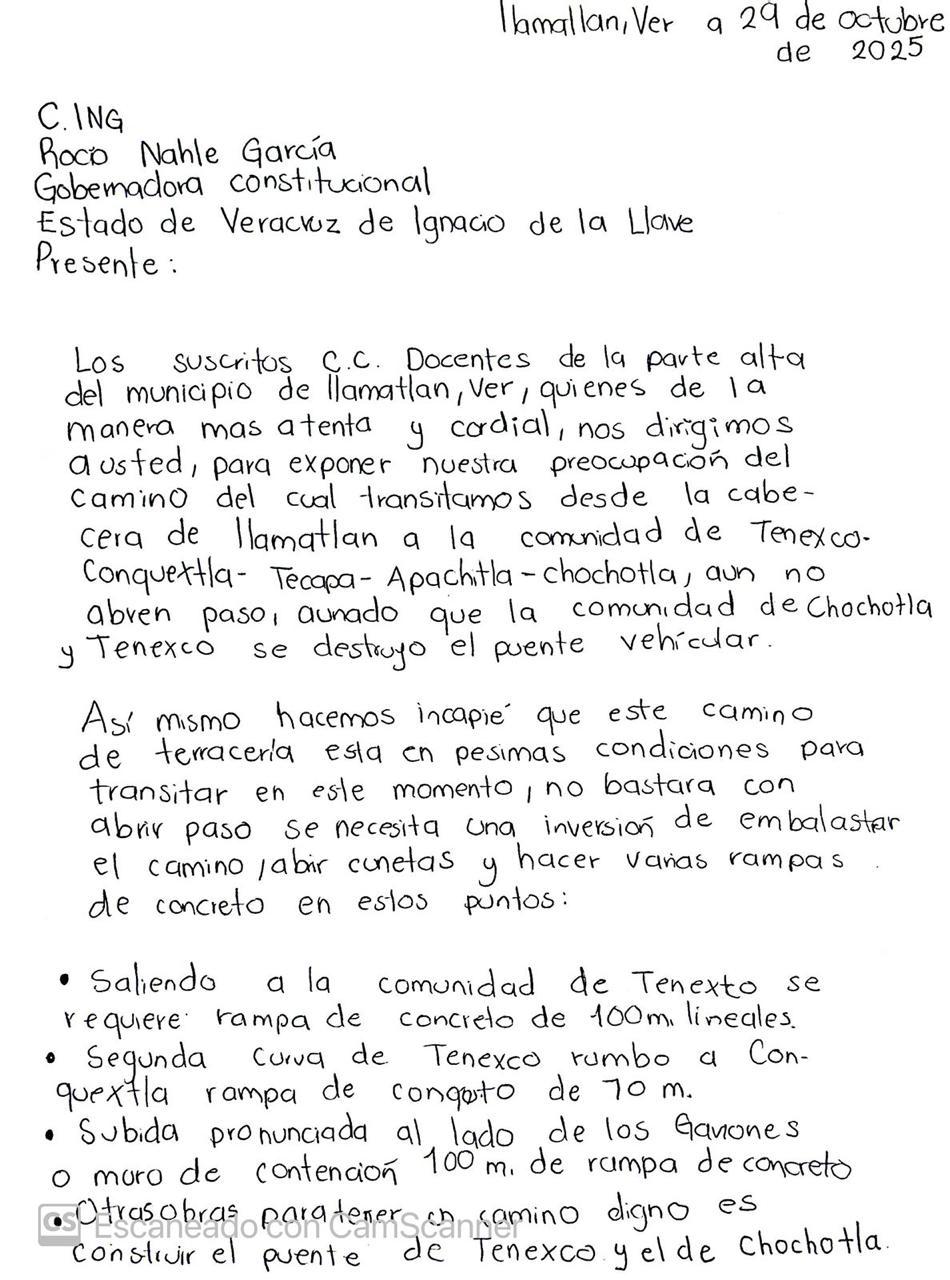 Ilamatlan, Ver a 29 de octubre
de 2025
C. ING
Rocio Nahle García
Gobernadora constitucional
Estado de Veracruz de Ignacio de la Llave
Presente:
Los suscritos C.C. Docentes de la parte alta
del municipio de Ilamatlan, Ver, quienes de la
manera mas atenta y cordial, nos dirigimos
a usted, para exponer nuestra preocupación del
camino del cual transitamos desde la cabe-
cera de Ilamatlan a la comunidad de Tenexco-
Conquextla- Tecapa- Apachitla- chochotla, aun no
abren paso, aunado que la comunidad de Chochotla
y Tenexco se destruyo el puente vehícular.
Así mismo hacemos incapié que este camino
de terracería esta en pesimas condiciones para
transitar en este momento, no bastara con
abrir paso se necesita una inversión de embalastar
el camino, abir cunetas y hacer varias rampas
de concreto en estos puntos:
• Saliendo a la comunidad de Tenexto se
requiere rampa de concreto de 100m. lineales.
• Segunda curva de Tenexco rumbo a Con-
quextla rampa de congoto de 70 m.
• Subida pronunciada al lado de los Gaviones
o muro de contención 100 m. de rampa de concreto
• Otras obras para tener un camino digno es
construir el puente de Tenexco y el de Chochotla.
CS Escaneado con CamScanner